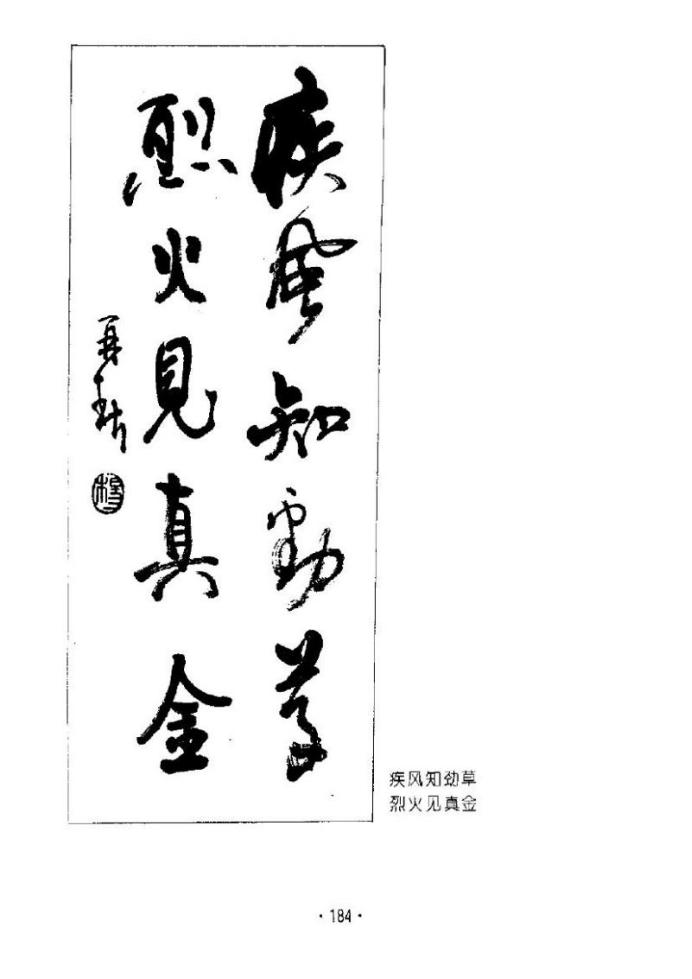 疾風知勁草
烈火見真金
再耕
疾风知劲草
烈火见真金
·184·